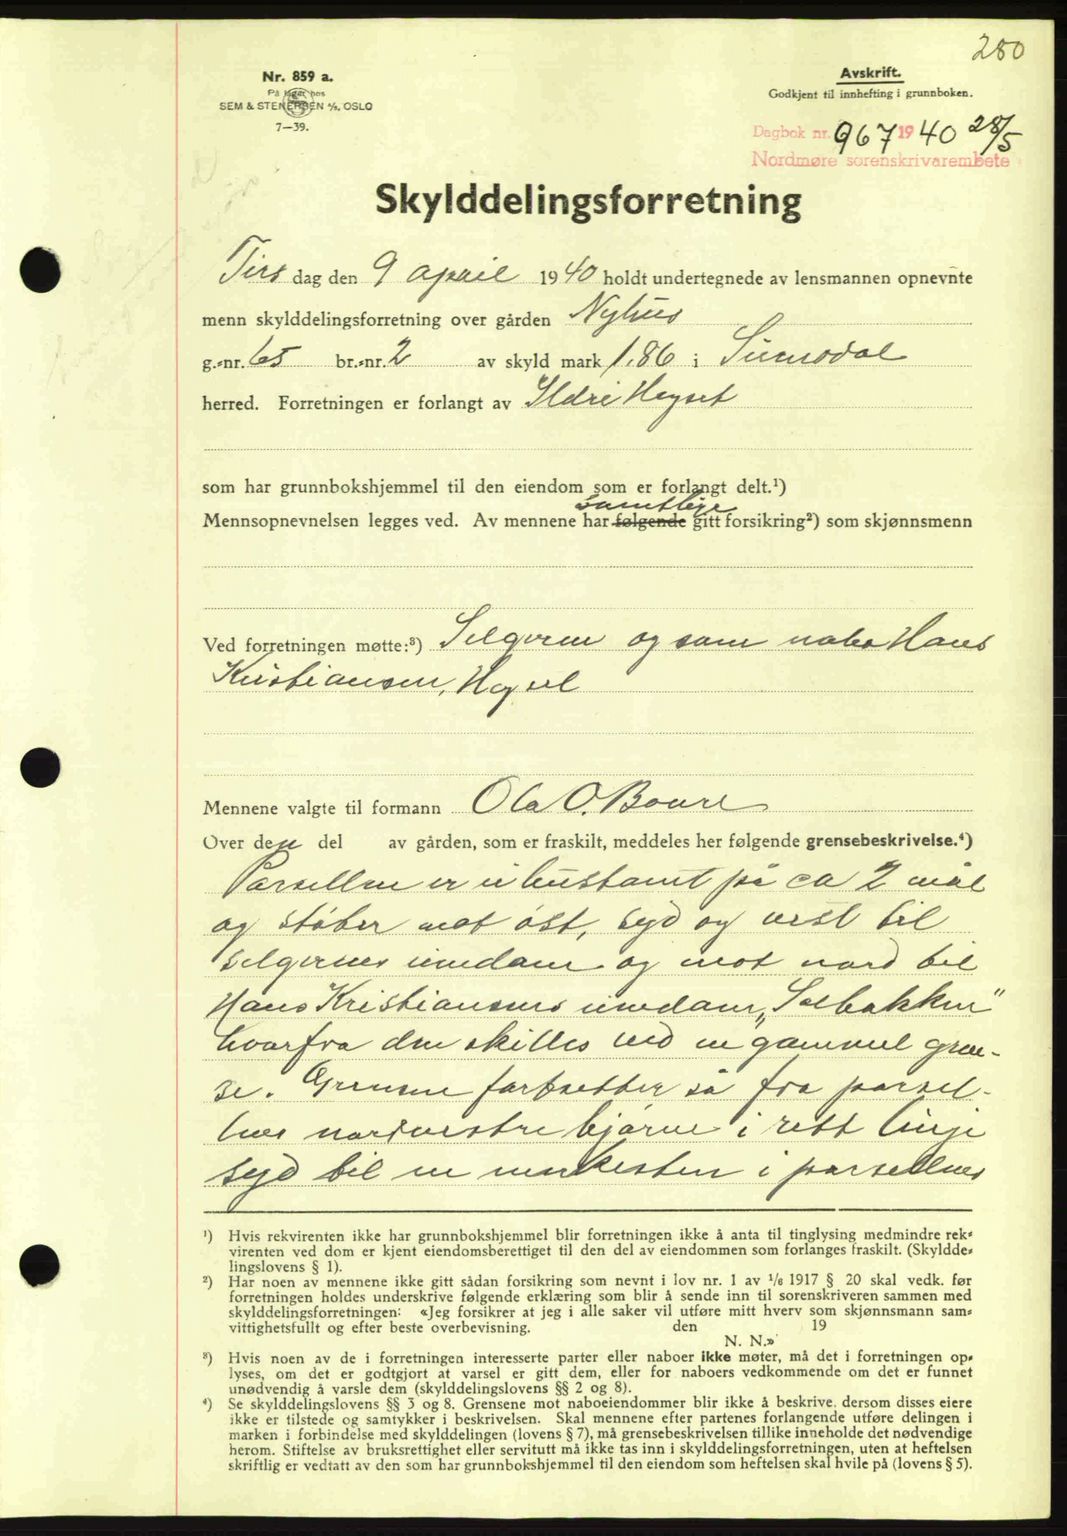 280
Nr. 859 a.
På lager hos
SEM & STENERSEN A/S, OSLO
7—39.
Avskrift.
Godkjent til innhefting i grunnboken.
Dagbok nr. 967 1940 28/5
Nordmøre sorenskrivarembete
Skylddelingsforretning
Tirs dag den 9 april 1940 holdt undertegnede av lensmannen opnevnte
menn skylddelingsforretning over gården Nyhus
g.-nr. 65 br.-nr. 2 av skyld mark 1.86 i Surnadal
herred. Forretningen er forlangt av Ildri Høyset
som har grunnbokshjemmel til den eiendom som er forlangt delt.¹)
samtlige
Mennsopnevnelsen legges ved. Av mennene har følgende gitt forsikring²) som skjønnsmenn
Ved forretningen møtte:³) Selgeren og som nabo Hans
Kristiansen, Høysel
Mennene valgte til formann Ola O. Bøure
Over denne del av gården, som er fraskilt, meddeles her følgende grensebeskrivelse.⁴)
Parsellen er ei hustomt på ca 2 mål
og støter mot øst, syd og vest til
selgerens eiendom og mot nord til
Hans Kristiansens eiendom „Solbakken"
hvorfra den skilles ved en gammel gren-
se. Grensene fortsetter så fra parsel-
lens nordvestre hjørne i rett linje
syd til en merkesten i parsellens
¹) Hvis rekvirenten ikke har grunnbokshjemmel blir forretningen ikke å anta til tinglysing medmindre rek-
virenten ved dom er kjent eiendomsberettiget til den del av eiendommen som forlanges fraskilt. (Skyldde-
lingslovens § 1).
²) Har noen av mennene ikke gitt sådan forsikring som nevnt i lov nr. 1 av 1/6 1917 § 20 skal vedk. før
forretningen holdes underskrive følgende erklæring som blir å sende inn til sorenskriveren sammen med
skylddelingsforretningen: «Jeg forsikrer at jeg i alle saker vil utføre mitt hverv som skjønnsmann sam-
vittighetsfullt og efter beste overbevisning. den 19
N. N.»
³) Hvis noen av de i forretningen interesserte parter eller naboer ikke møter, må det i forretningen op-
lyses, om det er godtgjort at varsel er gitt dem, eller for naboers vedkommende om det er funnet
unødvendig å varsle dem (skylddelingslovens §§ 2 og 8).
⁴) Se skylddelingslovens §§ 3 og 8. Grensene mot naboeiendommer blir ikke å beskrive, dersom disses eiere
ikke er tilstede og samtykker i beskrivelsen. Skal mennene efter partenes forlangende utføre delingen i
marken i forbindelse med skylddelingen (lovens § 7), må grensebeskrivelsen tillike inneholde det nødvendige
herom. Stiftelse av bruksrettighet eller servitutt må ikke tas inn i skylddelingsforretningen, uten at heftelsen
skriftlig er vedtatt av den som har grunnbokshjemmel til den eiendom som heftelsen skal hvile på (lovens § 5).